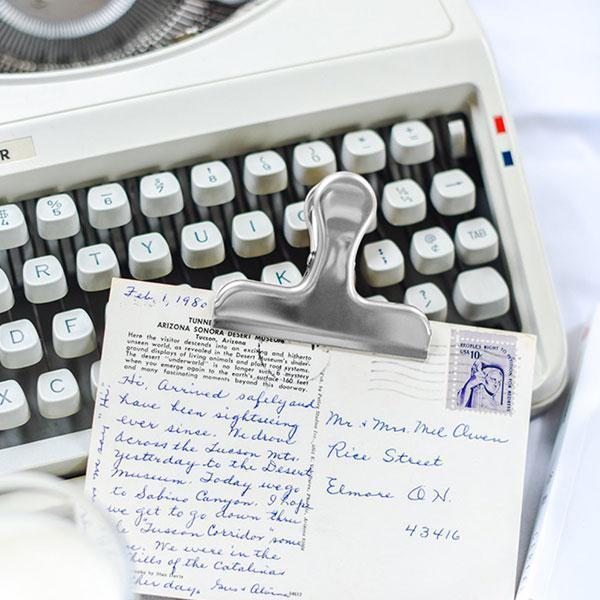 R
$ 4
% 5
— 6
& 7
' 8
( 9
) 0
* -
+ =
R T Y U I
¼ ½
D F K
: ;
@ ¢
TAB
X C
? /
Feb. 1, 1980
TUNNE
ARIZONA SONORA DESERT MUSEUM
Tucson, Arizona
Here the visitor descends into an exciting and hitherto
unseen world, as revealed in the Desert Museum's under-
ground displays of living animals and plant root systems.
The desert "underworld" is no longer such a mystery
when you emerge again to the earth's surface 160 feet
and many fascinating moments beyond this doorway.
Hi, Arrived safely and
have been sightseeing
ever since. We drove
across the Tucson Mts.
yesterday to the Desert
Museum. Today we go
to Sabino Canyon. I hope
we get to go down thru
"Tuscon Corridor" some
We were in the
hills of the Catalinas
her day. Gus & Alvina
PEOPLE'S RIGHT TO PETITION FOR REDRESS
USA 10c
Mr. & Mrs. Mel Owen
Rice Street
Elmore OH.
43416